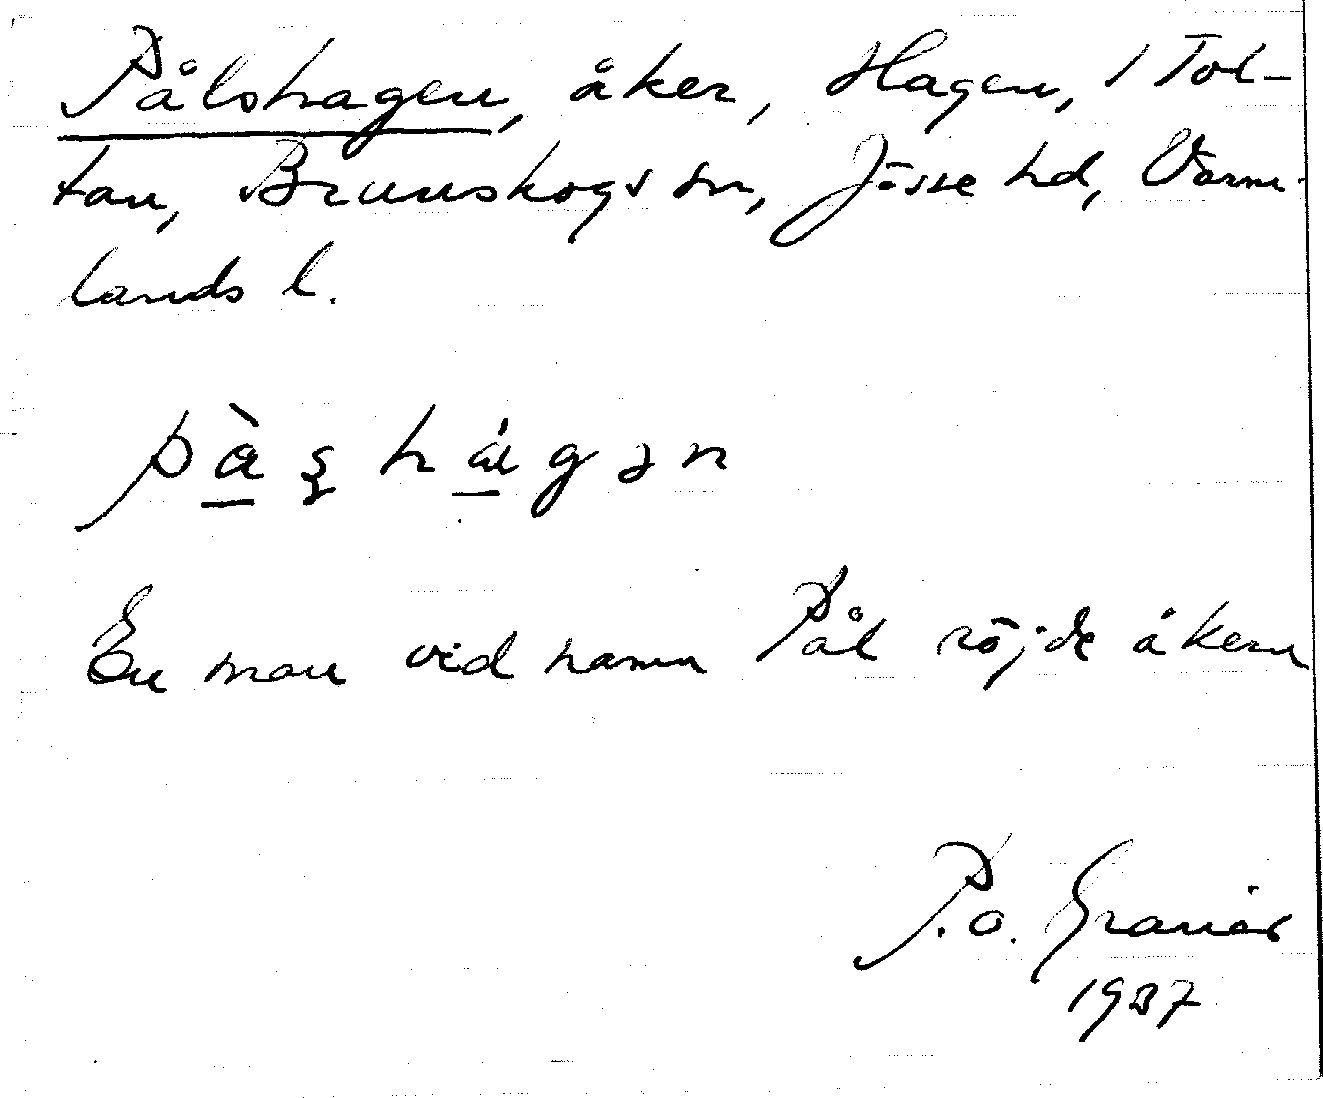 Pålshagen, åker, Hagen, 1 Tol-
tan, Brunskogs sn, Jösse hd, Värm-
lands l.
En man vid namn Pål röjde åkern
P.o. Graner
1937